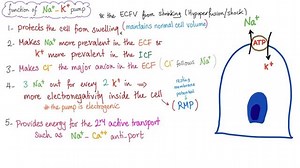 function of Na⁺-K⁺ pump
& the ECFV from shrinking (Hypoperfusion/shock)
1. protects the cell from swelling (maintains normal cell volume)
2. Makes Na⁺ more prevalent in the ECF &
K⁺ more prevalent in the ICF
3. Makes Cl⁻ the major anion in the ECF (Cl⁻ follows Na⁺)
4. 3 Na⁺ out for every 2 K⁺ in →
more electronegativity inside the cell
the pump is electrogenic
resting membrane potential
(RMP)
5. Provides energy for the 2ry active transport
such as Na⁺-Ca⁺⁺ anti-port
Na⁺
ATP
K⁺